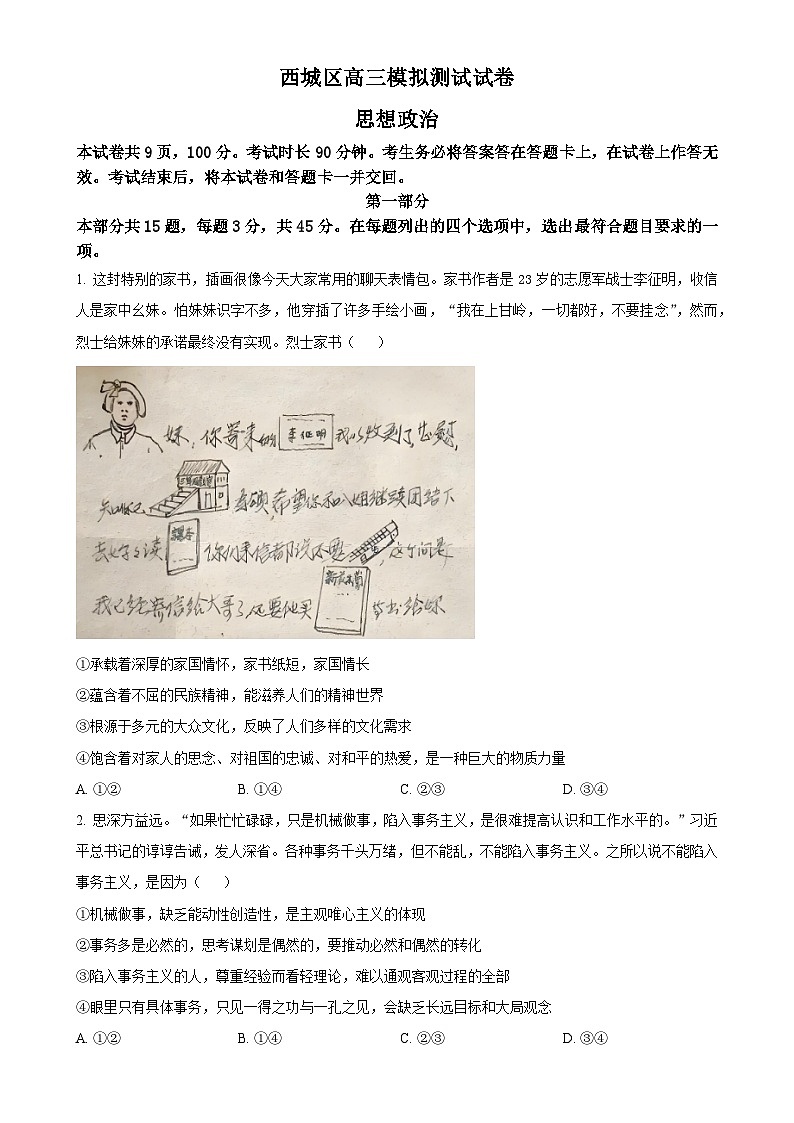 西城区高三模拟测试试卷
思想政治
本试卷共9页，100分。考试时长90分钟。考生务必将答案答在答题卡上，在试卷上作答无
效。考试结束后，将本试卷和答题卡一并交回。
第一部分
本部分共15题，每题3分，共45分。在每题列出的四个选项中，选出最符合题目要求的一
项。
1. 这封特别的家书，插画很像今天大家常用的聊天表情包。家书作者是23岁的志愿军战士李征明，收信
人是家中幺妹。怕妹妹识字不多，他穿插了许多手绘小画，“我在上甘岭，一切都好，不要挂念”，然而，
烈士给妹妹的承诺最终没有实现。烈士家书（ ）
妹：你寄来的 李征明 我以收到了
希望你和八姐继续团结下
去好好读 课本 你们来信都说不要 这个问题
我已经寄信给大哥了还要他买 等书给你
①承载着深厚的家国情怀，家书纸短，家国情长
②蕴含着不屈的民族精神，能滋养人们的精神世界
③根源于多元的大众文化，反映了人们多样的文化需求
④饱含着对家人的思念、对祖国的忠诚、对和平的热爱，是一种巨大的物质力量
A. ①② B. ①④ C. ②③ D. ③④
2. 思深方益远。“如果忙忙碌碌，只是机械做事，陷入事务主义，是很难提高认识和工作水平的。”习近
平总书记的谆谆告诫，发人深省。各种事务千头万绪，但不能乱，不能陷入事务主义。之所以说不能陷入
事务主义，是因为（ ）
①机械做事，缺乏能动性创造性，是主观唯心主义的体现
②事务多是必然的，思考谋划是偶然的，要推动必然和偶然的转化
③陷入事务主义的人，尊重经验而看轻理论，难以通观客观过程的全部
④眼里只有具体事务，只见一得之功与一孔之见，会缺乏长远目标和大局观念
A. ①② B. ①④ C. ②③ D. ③④